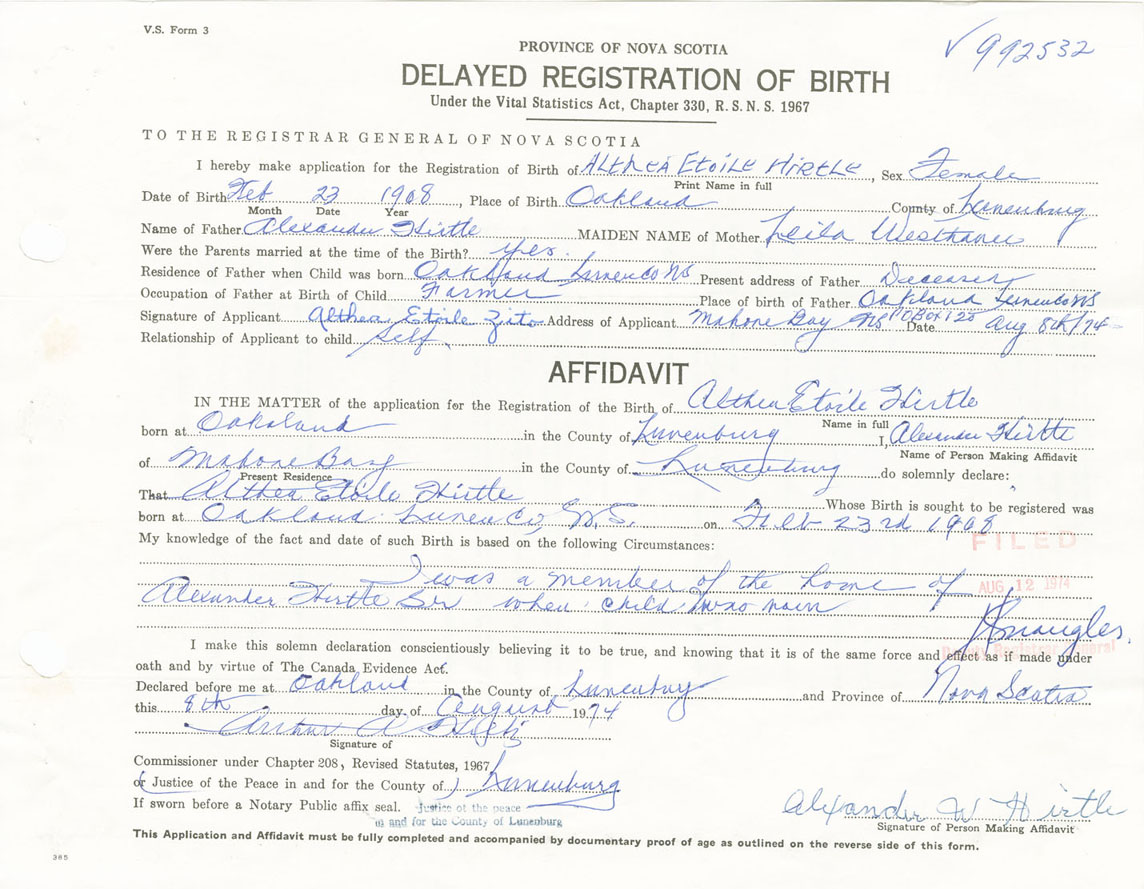 V.S. Form 3
992532
PROVINCE OF NOVA SCOTIA
DELAYED REGISTRATION OF BIRTH
Under the Vital Statistics Act, Chapter 330, R. S. N. S. 1967
TO THE REGISTRAR GENERAL OF NOVA SCOTIA
I hereby make application for the Registration of Birth of Althea Etoile Hirtle, Sex Female
Print Name in full
Date of Birth Feb 23 1908, Place of Birth Oakland County of Lunenburg
Month Date Year
Name of Father Alexander Hirtle MAIDEN NAME of Mother Leila Westhaver
Were the Parents married at the time of the Birth? yes.
Residence of Father when Child was born Oakland Lunen Co NS Present address of Father Deceased
Occupation of Father at Birth of Child Farmer Place of birth of Father Oakland Lunen Co NS
Signature of Applicant Althea Etoile Zito Address of Applicant Mahone Bay NS PO Box 125 Date Aug 8th/74
Relationship of Applicant to child Self
AFFIDAVIT
IN THE MATTER of the application for the Registration of the Birth of Althea Etoile Hirtle
Name in full
born at Oakland in the County of Lunenburg I, Alexander Hirtle
Name of Person Making Affidavit
of Mahone Bay in the County of Lunenburg do solemnly declare:
Present Residence
That Althea Etoile Hirtle Whose Birth is sought to be registered was
born at Oakland Lunen Co, N.S. on Feb 23rd 1908
My knowledge of the fact and date of such Birth is based on the following Circumstances:
FILED
I was a member of the home of
AUG 12 1974
Alexander Hirtle Snr when child was born
I make this solemn declaration conscientiously believing it to be true, and knowing that it is of the same force and effect as if made under
Deputy Registrar General
oath and by virtue of The Canada Evidence Act.
Declared before me at Oakland in the County of Lunenburg and Province of Nova Scotia
this 8th day of August 1974
Arthur A
Signature of
Commissioner under Chapter 208, Revised Statutes, 1967
or (Justice of the Peace in and for the County of) Lunenburg
If sworn before a Notary Public affix seal. Justice of the peace
in and for the County of Lunenburg
Alexander W Hirtle
Signature of Person Making Affidavit
This Application and Affidavit must be fully completed and accompanied by documentary proof of age as outlined on the reverse side of this form.
385